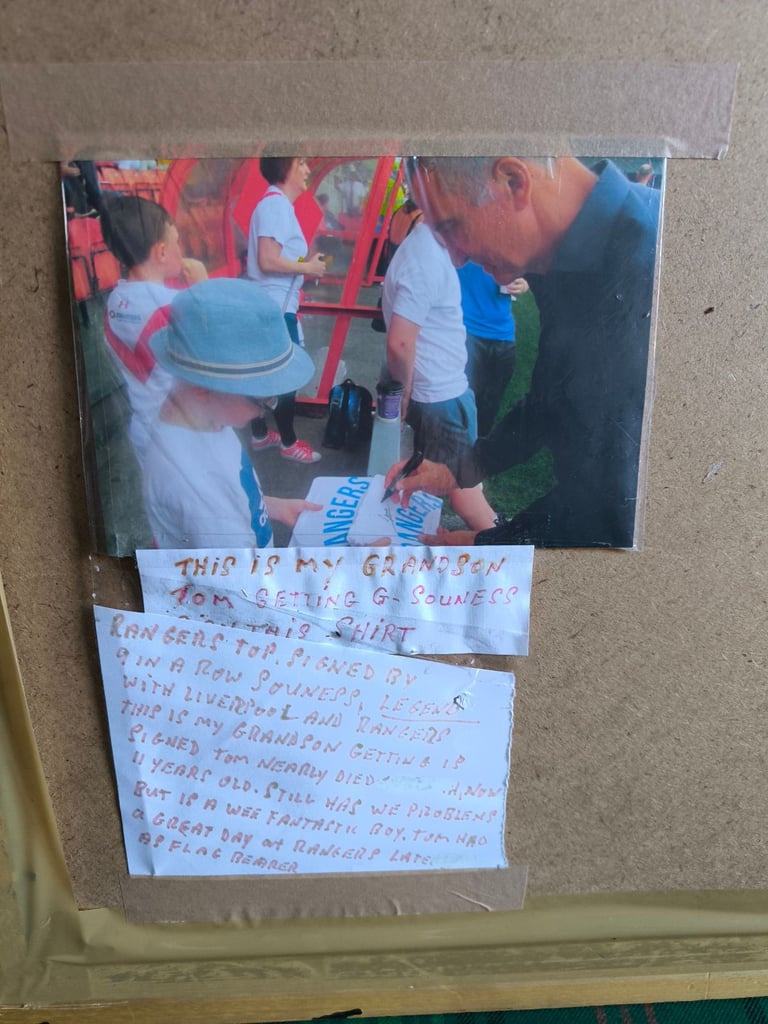 RANGERS
RANGERS
THIS IS MY GRANDSON
TOM GETTING G-SOUNESS
THIS SHIRT
RANGERS TOP. SIGNED BY
9 IN A ROW SOUNESS, LEGEND
WITH LIVERPOOL AND RANGERS
THIS IS MY GRANDSON GETTING IS
SIGNED TOM NEARLY DIED NOW
11 YEARS OLD. STILL HAS WE PROBLEMS
BUT IS A WEE FANTASTIC BOY. TOM HAD
A GREAT DAY AT RANGERS LATE
AS FLAG BEARER